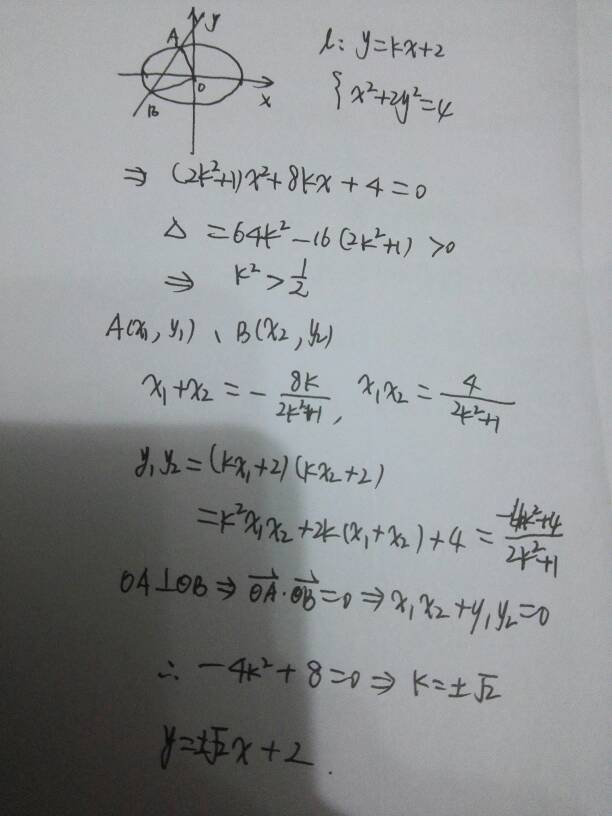 y
A
O
x
B
l: y=kx+2
{ x²+2y²=4
⇒ (2k²+1)x²+8kx+4=0
Δ =64k²-16(2k²+1)>0
⇒ k²>1/2
A(x₁,y₁)、B(x₂,y₂)
x₁+x₂=-8k/(2k²+1), x₁x₂=4/(2k²+1)
y₁y₂=(kx₁+2)(kx₂+2)
=k²x₁x₂+2k(x₁+x₂)+4=(-4k²+4)/(2k²+1)
OA⊥OB⇒OA·OB=0⇒x₁x₂+y₁y₂=0
∴ -4k²+8=0⇒k=±√2
y=±√2x+2.